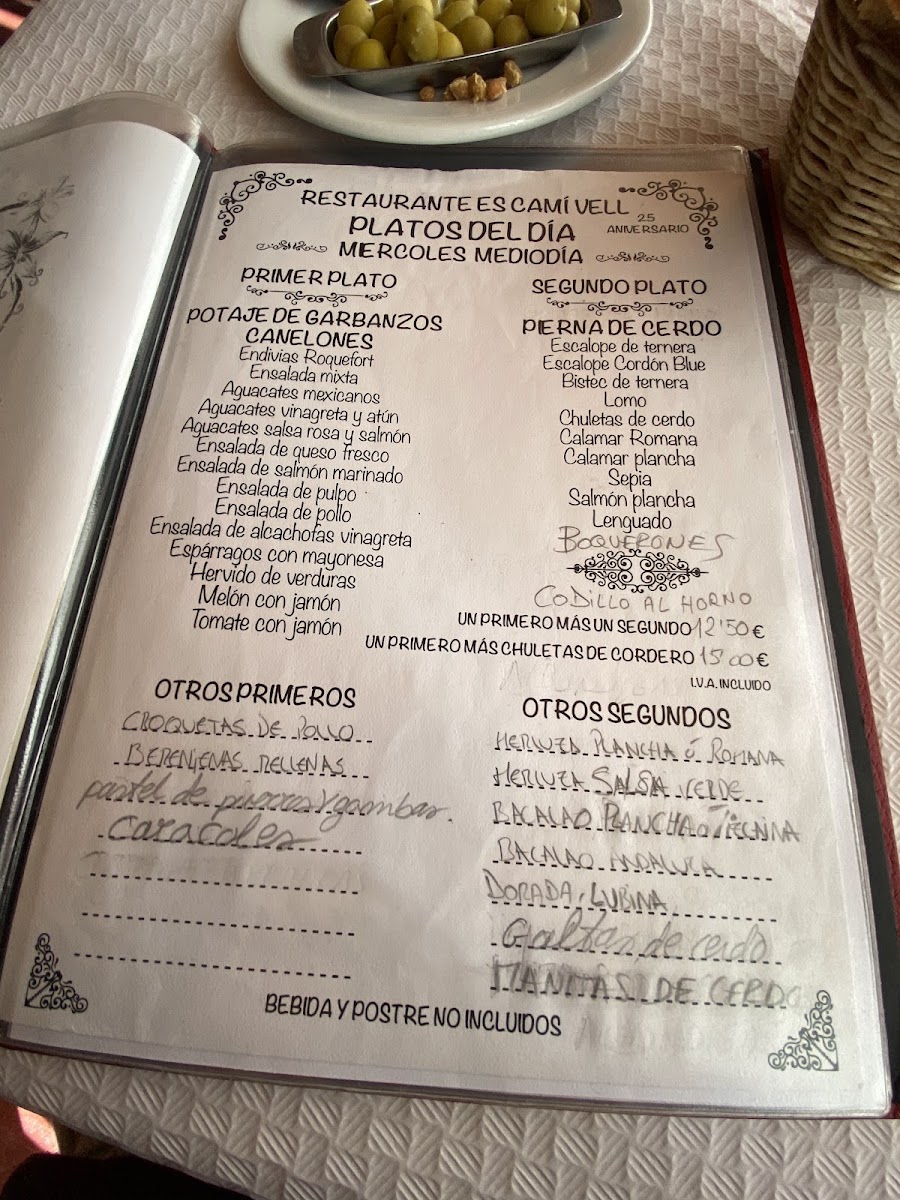 RESTAURANTE ES CAMÍ VELL
25
ANIVERSARIO
PLATOS DEL DÍA
MIERCOLES MEDIODÍA
PRIMER PLATO
POTAJE DE GARBANZOS
CANELONES
Endivias Roquefort
Ensalada mixta
Aguacates mexicanos
Aguacates vinagreta y atún
Aguacates salsa rosa y salmón
Ensalada de queso fresco
Ensalada de salmón marinado
Ensalada de pulpo
Ensalada de pollo
Ensalada de alcachofas vinagreta
Espárragos con mayonesa
Hervido de verduras
Melón con jamón
Tomate con jamón
SEGUNDO PLATO
PIERNA DE CERDO
Escalope de ternera
Escalope Cordón Blue
Bistec de ternera
Lomo
Chuletas de cerdo
Calamar Romana
Calamar plancha
Sepia
Salmón plancha
Lenguado
BOQUERONES
CODILLO AL HORNO
UN PRIMERO MÁS UN SEGUNDO 12'50 €
UN PRIMERO MÁS CHULETAS DE CORDERO 15'00 €
I.V.A. INCLUIDO
OTROS PRIMEROS
CROQUETAS DE POLLO
BERENJENAS RELLENAS
pastel de puerros y gambas.
Caracoles
OTROS SEGUNDOS
MERLUZA PLANCHA ó ROMANA
MERLUZA SALSA VERDE
BACALAO PLANCHA o
BACALAO ANDALUZA
DORADA, LUBINA
Galtas de cerdo
MANITAS DE CERDO
BEBIDA Y POSTRE NO INCLUIDOS